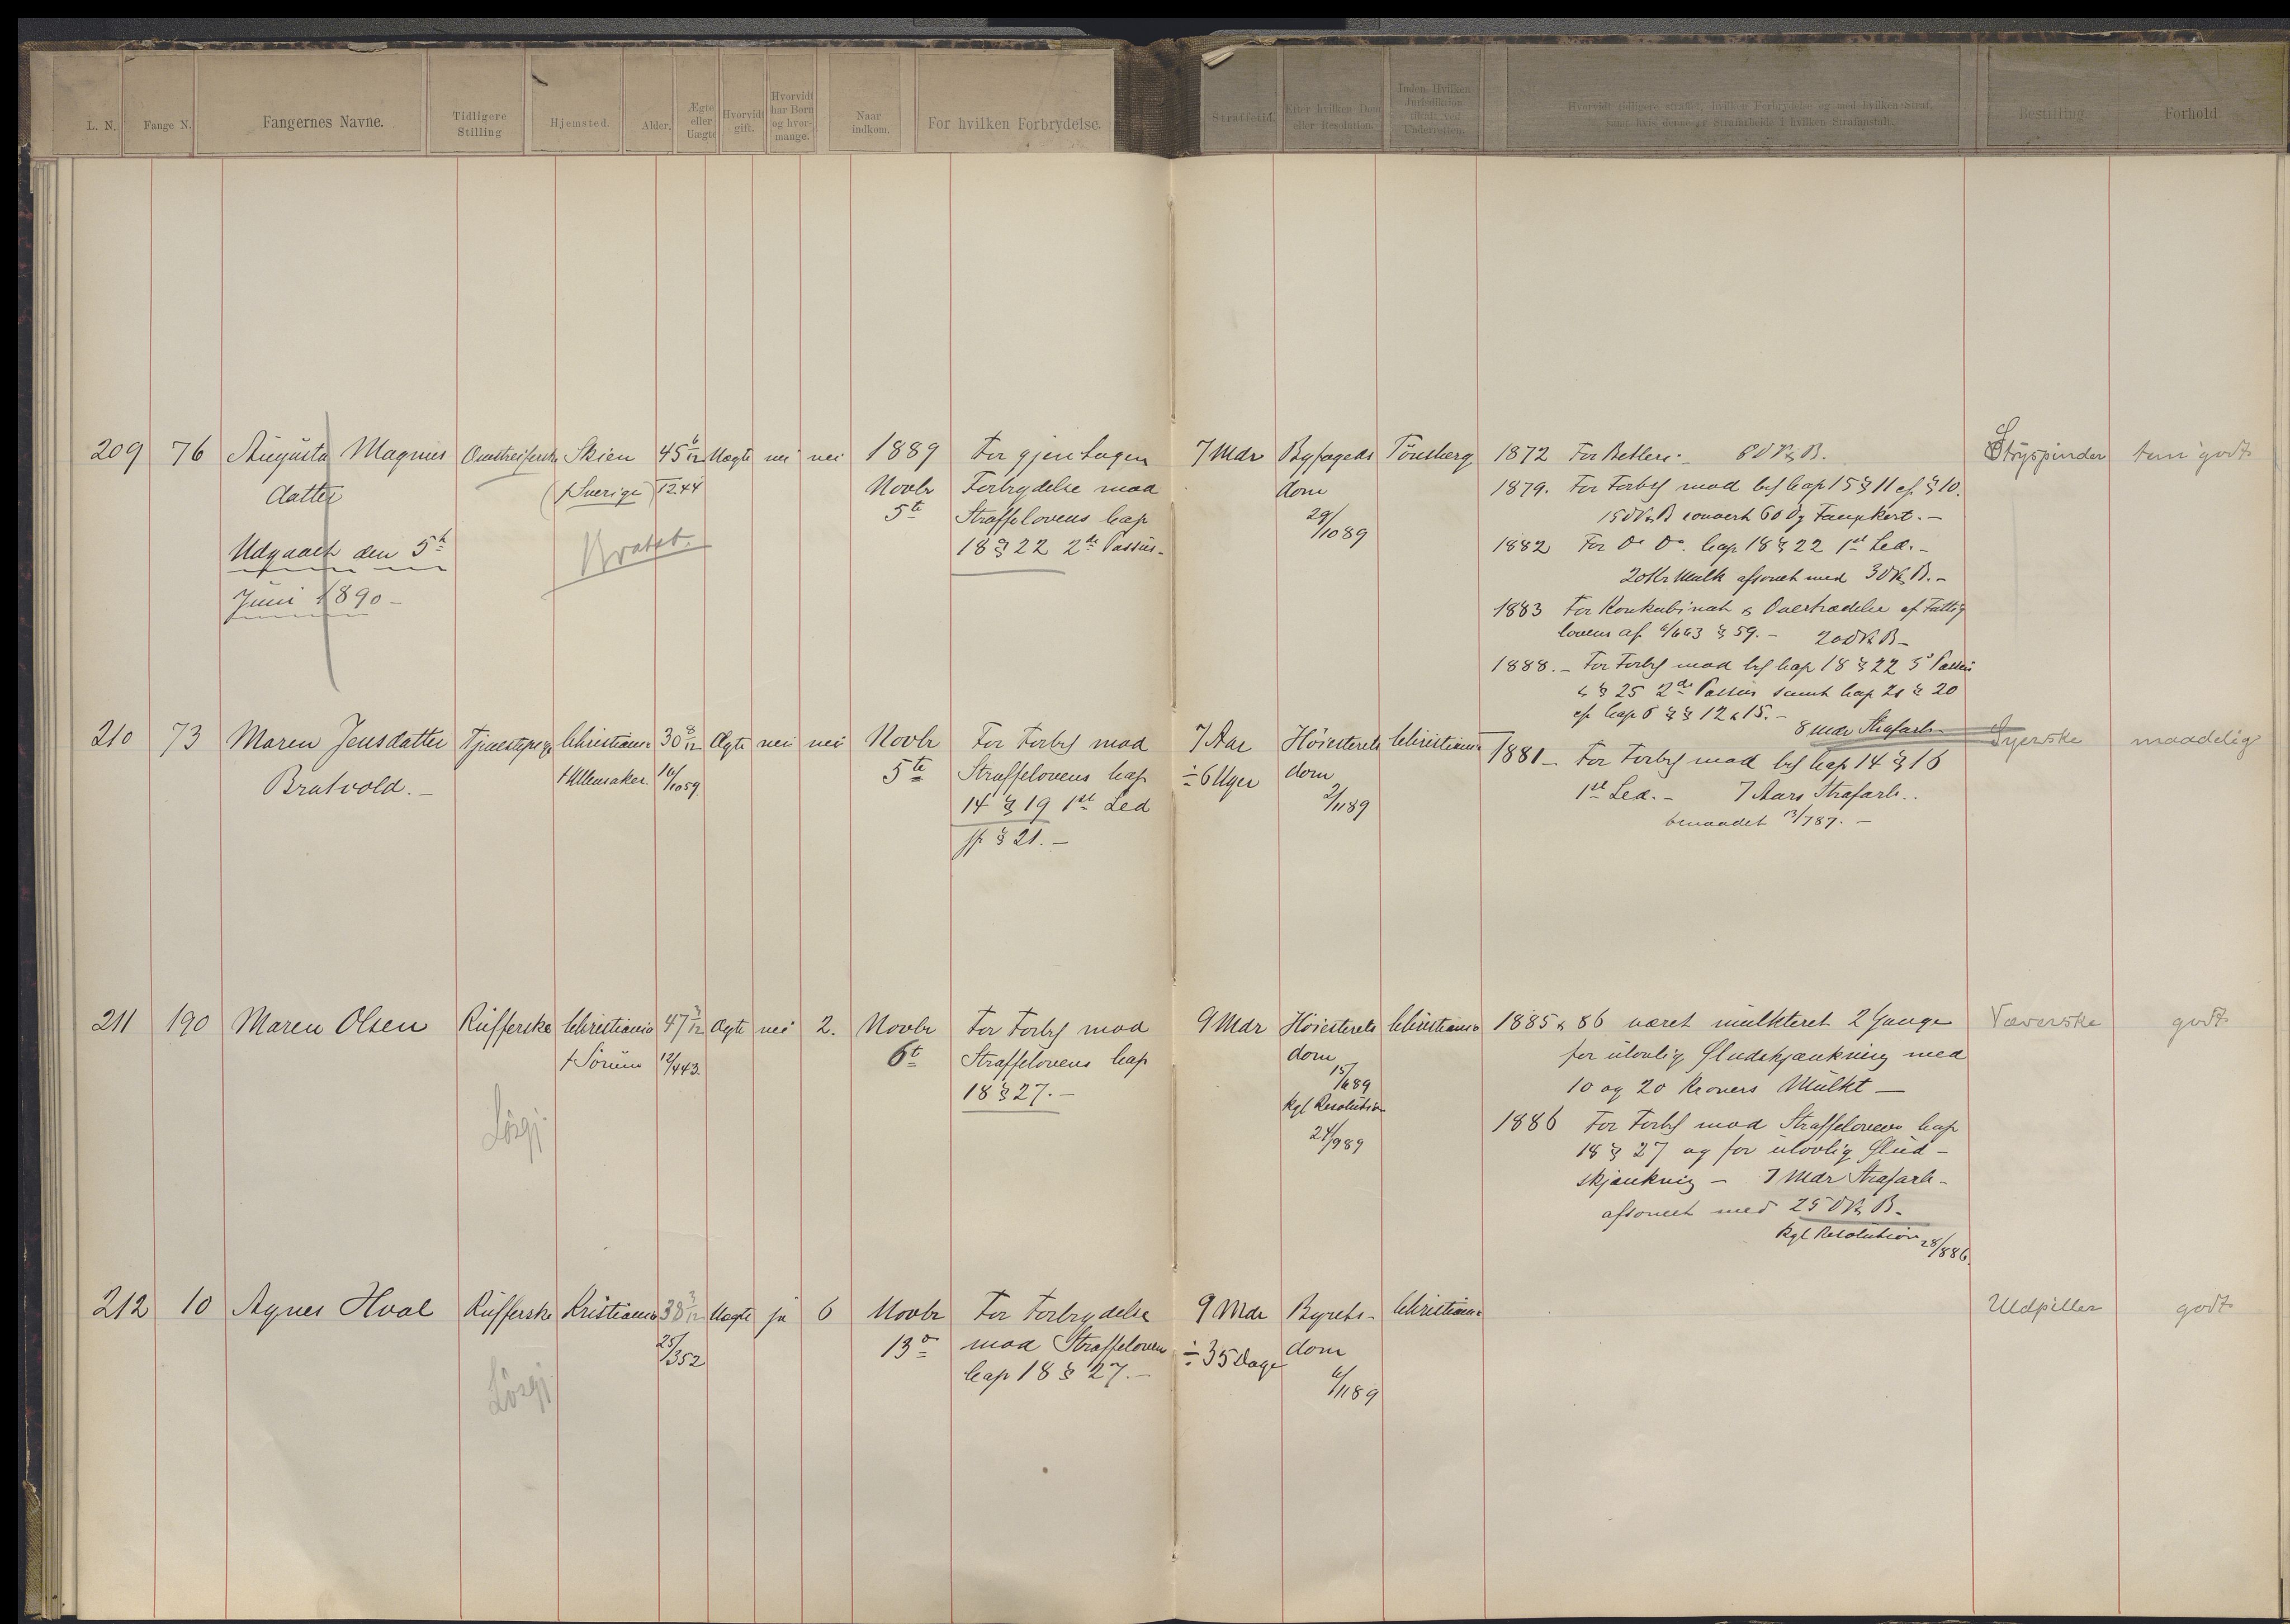 L. N.
Fange N.
Fangernes Navne.
Tidligere
Stilling
Hjemsted.
Alder.
Ægte
eller
Uægte
Hvorvidt
gift.
Hvorvidt
har Børn
og hvor-
mange.
Naar
indkom.
For hvilken Forbrydelse.
Straffetid.
Efter hvilken Dom
eller Resolution.
Inden Hvilken
Jurisdiktion
tiltalt ved
Underretten.
Hvorvidt tidligere straffet, hvilken Forbrydelse og med hvilken Straf,
samt hvis denne er Strafarbeide i hvilken Strafanstalt.
Bestilling.
Forhold
209
76
Augusta Magnus
datter
Udgaaet den 5te
Juni 1890 -
Omstreiferske
Skien
(f Sverige)
Kvatet.
45 6/12
12.44
Uægte
nei
nei
1889
Novbr
5te
For gjentagen
Forbrydelse mod
Straffelovens Cap
18 § 22 2de Passus-
7 Mdr
Byfogeds
dom
29/10 89
Tönsberg
1872 For Betleri - 8 D V & B.
1879. For Forbr mod lvs Cap 15 § 11 cf. § 10.
15 D V & B convert 60 Dg Tampkort. -
1882 For Do Do. Cap 18 § 22 1st Led. -
20 Kr Mulk afsonet med 3 D V & B. -
1883 For Konkubinat & Overtrædelse af Fattig
lovens af 6/6 63 § 59. - 20 D V & B -
1888. - For Forbr mod lvs Cap 18 § 22 5' Passus
& § 25 2de Passus samt Cap 21 § 20
cf Cap 6 § § 12 & 15. -
8 Mdr Strafarb.
Stryspinder
tem godt
210
73
Maren Jensdatter
Bratvold. -
Tjenestepige
Christiania
f Ullensaker.
30 8/12
16/10 59
Ægte
nei
nei
Novbr
5te
For Forbr mod
Straffelovens Cap
14 § 19 1st Led
jf § 21. -
7 Aar
÷ 6 Uger
Höiesterets
dom
2/11 89
Christiania
1881 - For Forbr mod lvs Cap 14 § 16
1st Led. - 7 Aars Strafarb..
benaadet 13/7 87. -
Syerske
maadelig
211
190
Maren Olsen
Rufferske
Løsgj.
Christiania
f Sörum
47 7/12
12/4 43.
Ægte
nei
2.
Novbr
6t
For Forbr mod
Straffelovens Cap
18 § 27. -
9 Mdr
Höiesterets
dom
15/6 89
Kgl Resolution
24/9 89
Christiania
1885 & 86 været mulkteret 2 Gange
for ulovlig Øludskjænkning med
10 og 20 Kroners Mulkt -
1886 For Forbr mod Straffeloven Cap
18 § 27 og for ulovlig Ølud-
skjænkning - 7 Mdr Strafarb -
afsonet med 25 D V & B -
Kgl Resolution 28/8 86.
Væverske
godt
212
10
Agnes Hval
Rufferske
Løsgj.
Kristiania
38 3/12
25/3 52
Uægte
ja
6
Novbr
13de
For Forbrydelse
mod Straffeloven
Cap 18 § 27. -
9 Mdr
÷ 35 Dage
Byrets-
dom
6/11 89
Christiania
Uldpiller
godt